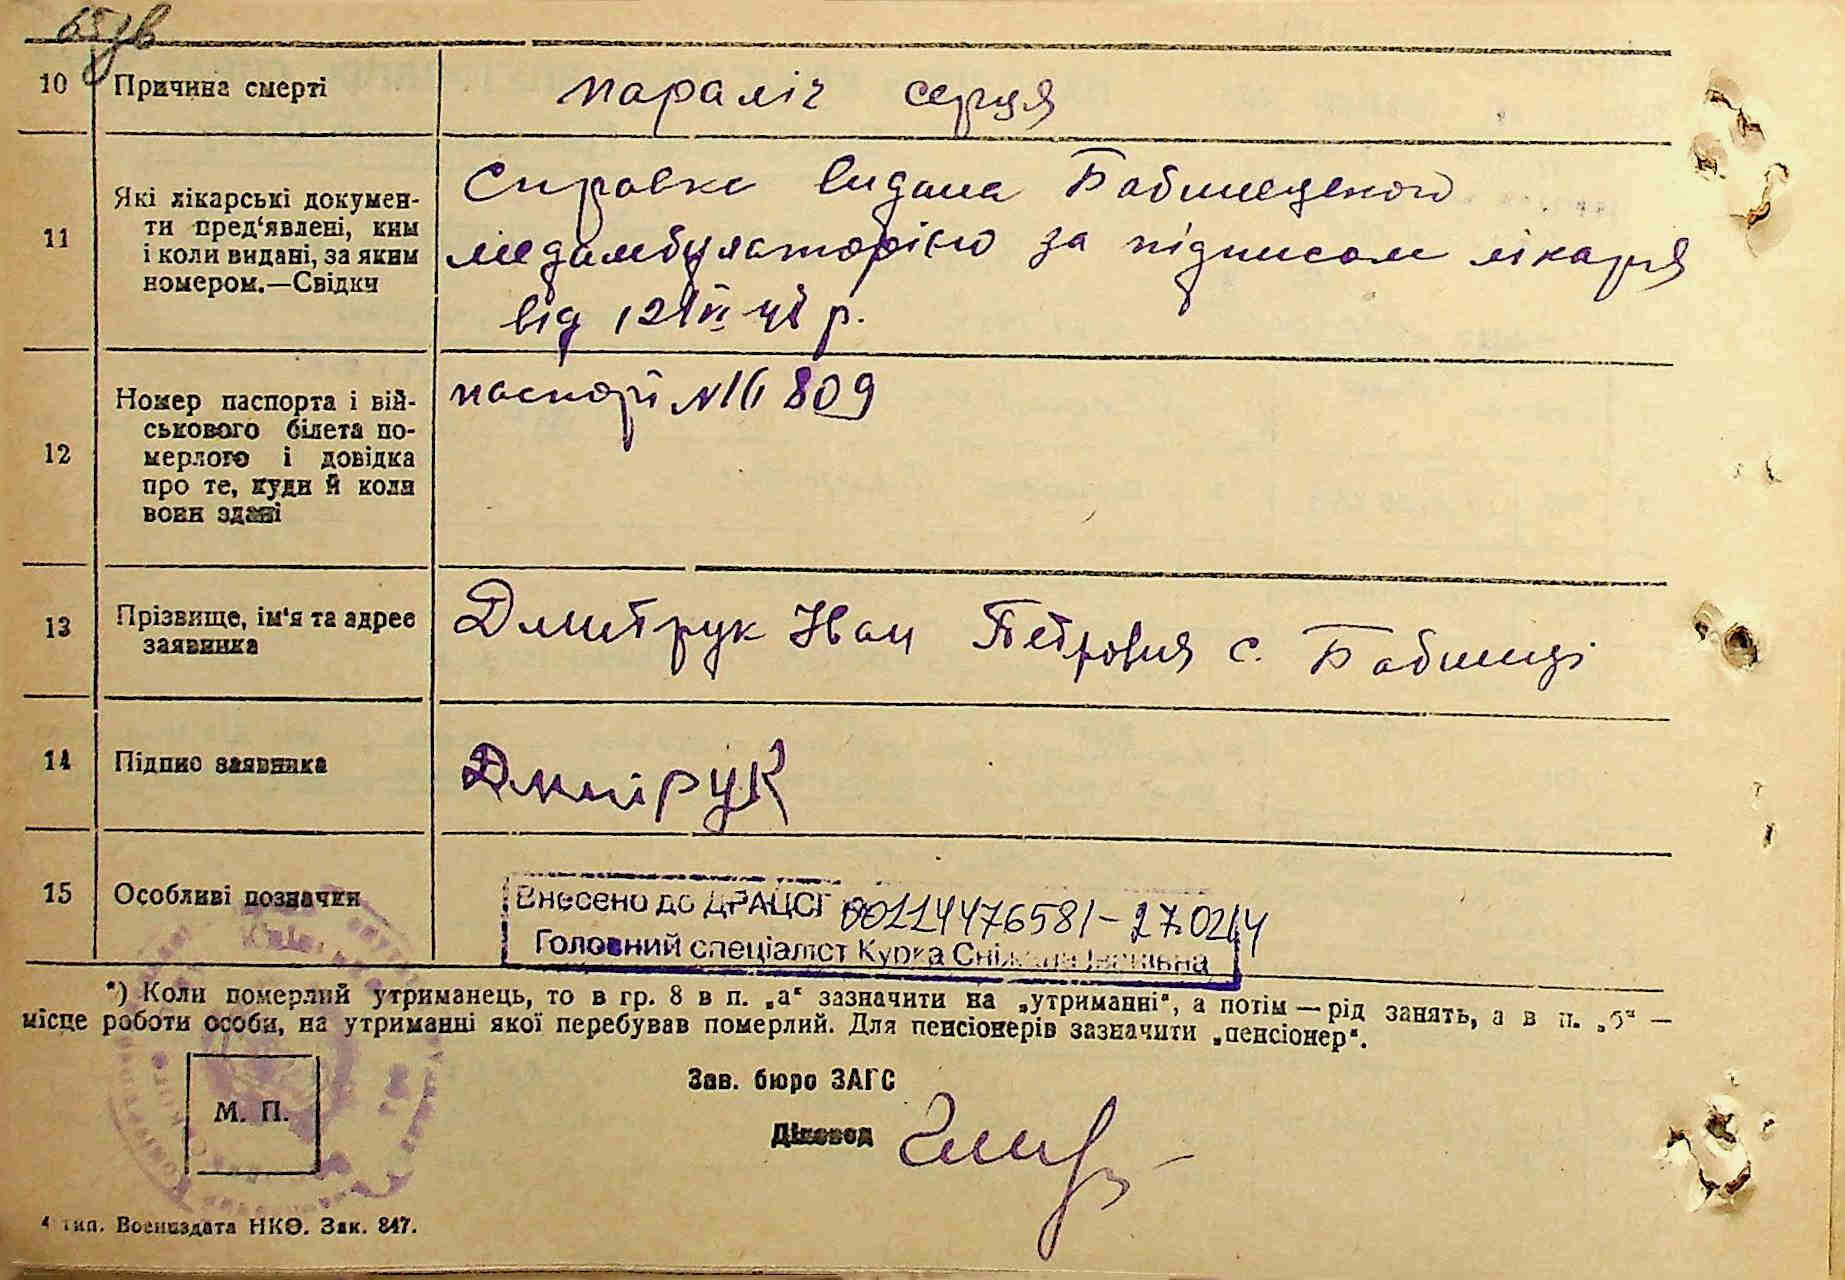 65зв
10 Причина смерті параліч серця
11 Які лікарські докумен-
ти пред‘явлені, ким
і коли видані, за яким
номером.—Свідки
Справка видана Бабинецького
медамбулаторією за підписом лікаря
від 12/VI 48 р.
12 Номер паспорта і вій-
ськового білета по-
мерлого і довідка
про те, куди й коли
вони здані
паспорт № 809
13 Прізвище, ім‘я та адрес
заявника
Дмитрук Іван Петрович с. Бабинці
14 Підпис заявника Дмитрук
15 Особливі позначки
Внесено до ДРАЦСГ 00114476581-27.02.14
Головний спеціаліст Курка Сніжана Іванівна
*) Коли померлий утриманець, то в гр. 8 в п. „а“ зазначити на „утриманні“, а потім — рід занять, а в п. „б“ —
місце роботи особи, на утриманні якої перебував померлий. Для пенсіонерів зазначити „пенсіонер“.
Зав. бюро ЗАГС
М. П.
Діловод
4 тип. Воениздата НКО. Зак. 847.